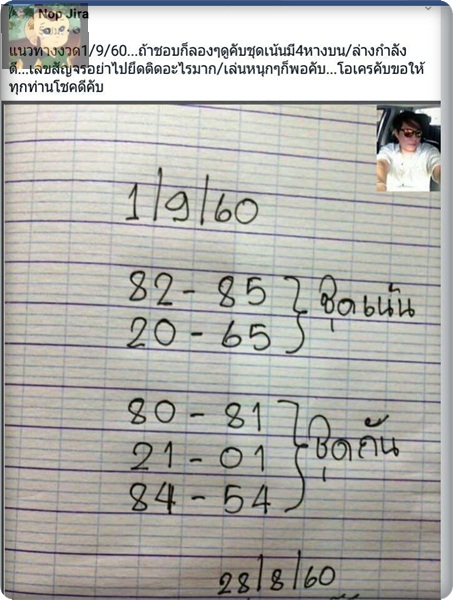 Nop Jira
แนวทางงวด1/9/60...ถ้าชอบก็ลองๆดูคับชุดเน้นมี4หางบน/ล่างกำลัง
ดี...เลขสัญจรอย่าไปยึดติดอะไรมาก/เล่นหนุกๆก็พอคับ...โอเครคับขอให้
ทุกท่านโชคดีคับ
1/9/60
82-85 } ชุดเน้น
20-65
80-81
21-01 } ชุดกัน
84-54
28/8/60